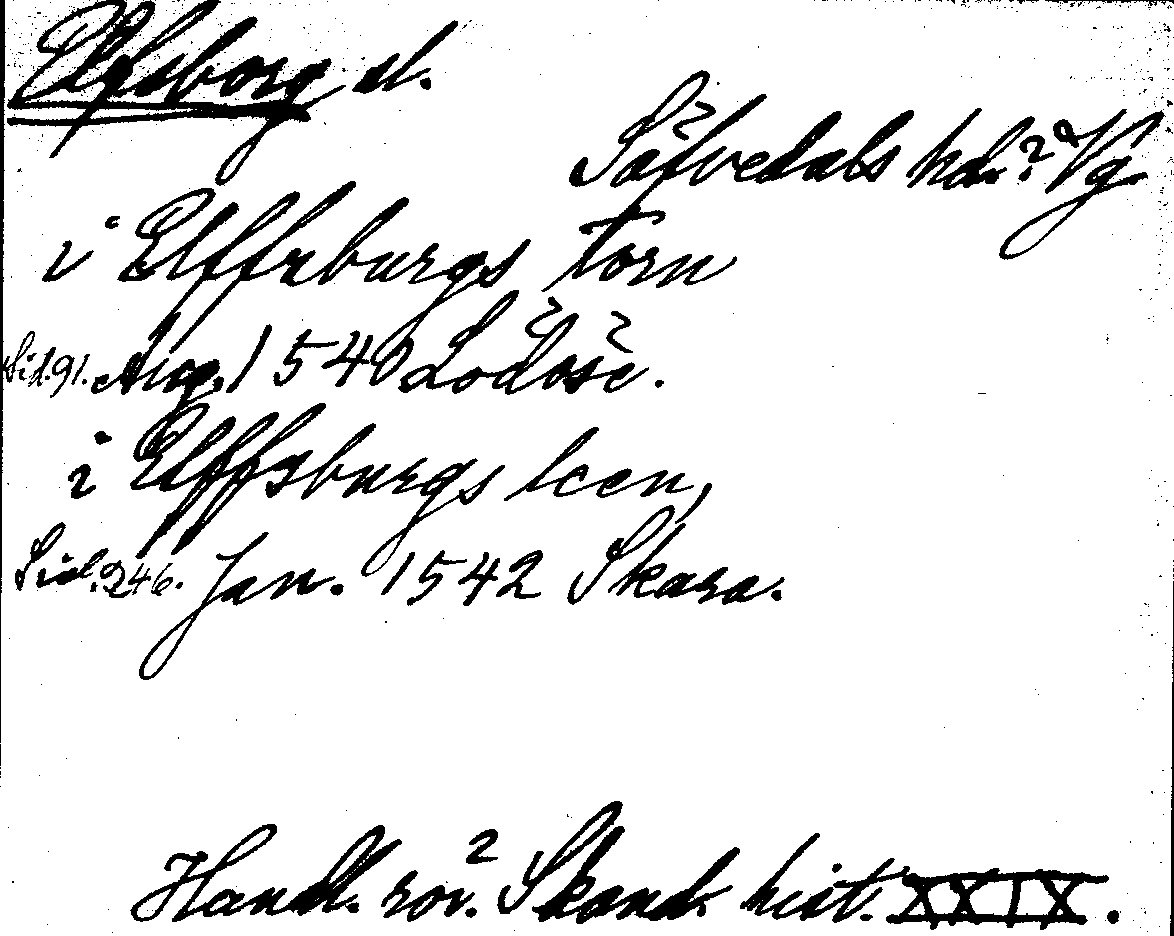 Elfsborg sl.
Säfvedals hd.? Vg
i Elffzburgs torn
Sid. 91. Aug. 1540 Lödöse.
i Elffzburgs leen,
Sid. 246. Jan. 1542 Skara.
Handl. rör. Skand. hist. XXIX.